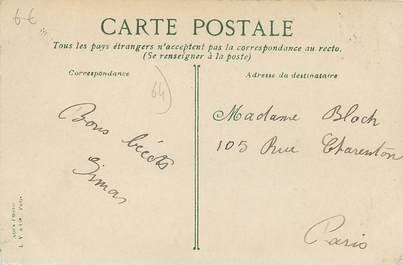 6€
CARTE POSTALE
Tous les pays étrangers n'acceptent pas la correspondance au recto.
(Se renseigner à la poste)
Correspondance
Adresse du destinataire
64)
Bons bécots
Madame Bloch
105 Rue Charenton
Paris